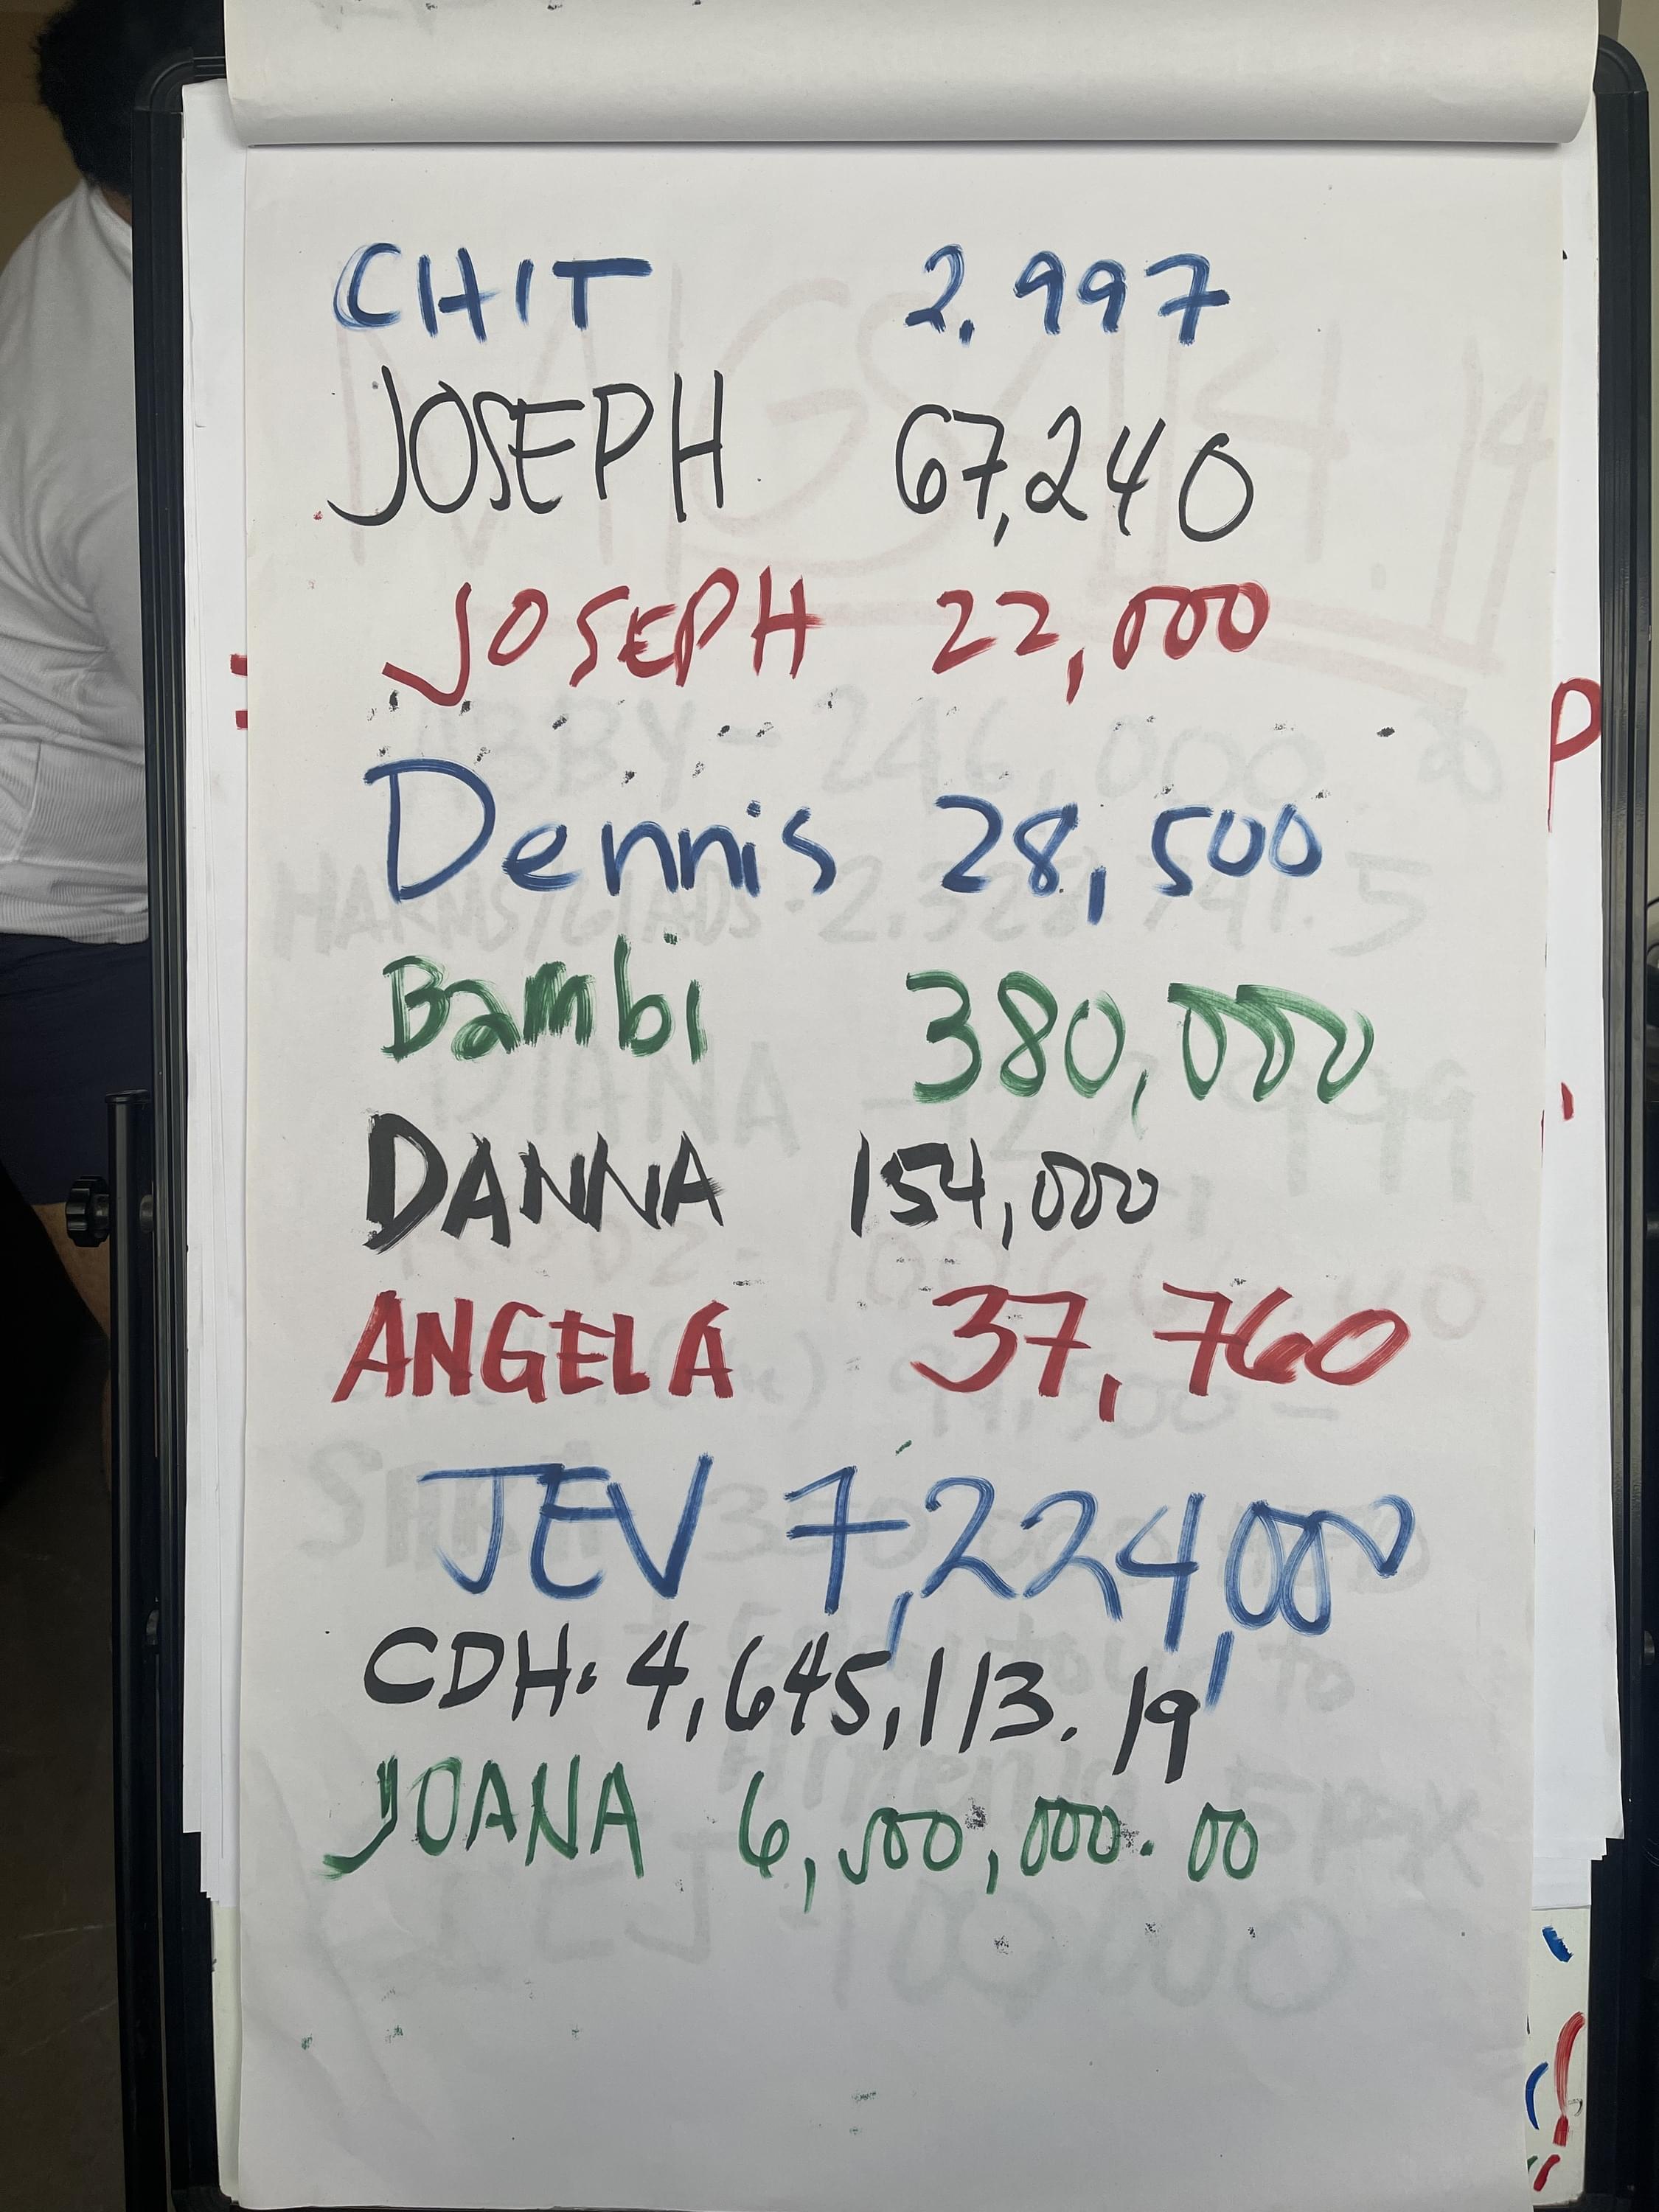 CHIT 2.997
JOSEPH 67,240
JOSEPH 22,000
Dennis 28,500
Bambi 380,000
DANNA 154,000
ANGELA 37,760
JEV 7,224,000
CDH. 4,645,113.19
JOANA 6,500,000.00